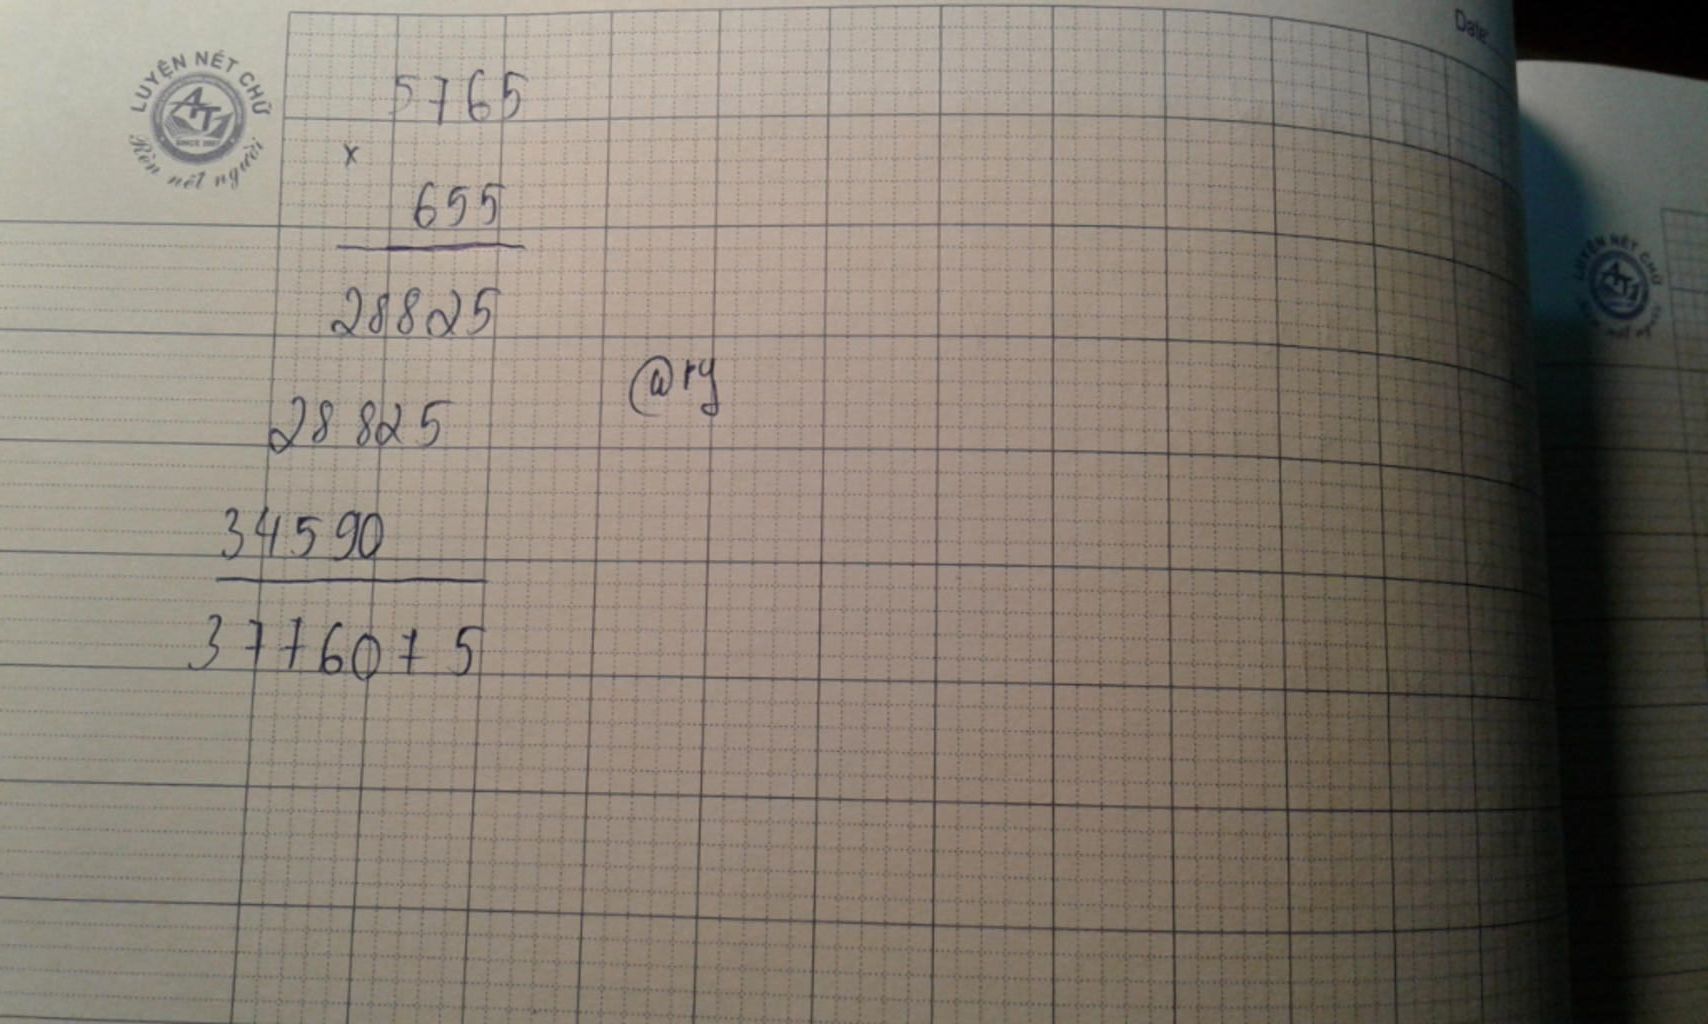 LUYỆN NÉT CHỮ
AT
SINCE
Rèn nết người
Date:
5765
x
655
28825
28825
34590
3776075
@ry
LUYỆN NÉT CHỮ
AT